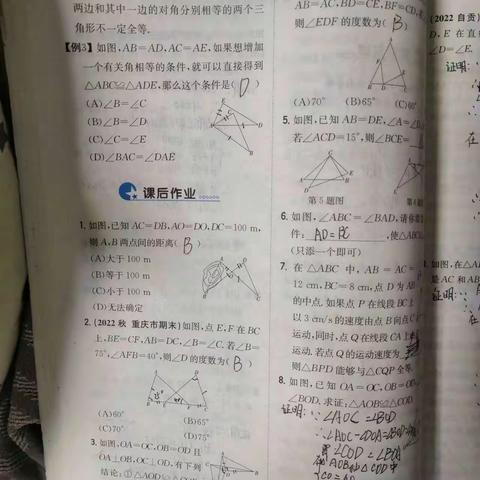 两边和其中一边的对角分别相等的两个三
角形不一定全等.
【例3】如图,AB=AD,AC=AE,如果想增加
一个有关角相等的条件,就可以直接得到
△ABC≌△ADE,那么这个条件是( D )
(A)∠B=∠C
(B)∠B=∠D
(C)∠C=∠E
(D)∠BAC=∠DAE
课后作业
1. 如图,已知 AC=DB,AO=DO,DC=100 m,
则 A,B 两点间的距离( B )
(A)大于 100 m
(B)等于 100 m
(C)小于 100 m
(D)无法确定
2. (2022 秋 重庆市期末)如图,点 E,F 在 BC
上,BE=CF,AB=DC,∠B=∠C.若∠B=
75°,∠AFB=40°,则∠D 的度数为( B )
(A)60°
(B)65°
(C)70°
(D)75°
3. 如图,OA=OC,OB=OD 且
OA⊥OB,OC⊥OD,有下列
结论:①△AOD≌△
AB=AC,BD=CE,BF=CD,
则∠EDF 的度数为( B )
(A)70°
(B)65°
(C)60°
5. 如图,已知 AB=DE,∠A=∠D
若∠ACD=15°,则∠BCE=
第 5 题图
6. 如图,∠ABC=∠BAD,请你
件: AD=BC ,使△ABC
(只添一个即可)
7. 在 △ABC 中, AB = AC =
12 cm,BC=8 cm,点 D 为 AB
的中点.如果点 P 在线段 BC 上
以 3 cm/s 的速度由点 B 向点 C
运动,同时,点 Q 在线段 CA 上
运动.若点 Q 的运动速度为
则△BPD 能够与△CQP 全等.
8. 如图,已知 OA=OC,OB=OD,
∠BOD.求证:△AOB≌△COD
证明:∵∠AOC=∠BOD
(2022 自贡)
D,E 在直
∠D=∠E.
证明:
在
如图,在△AB
是 AC 和 AB
证明: